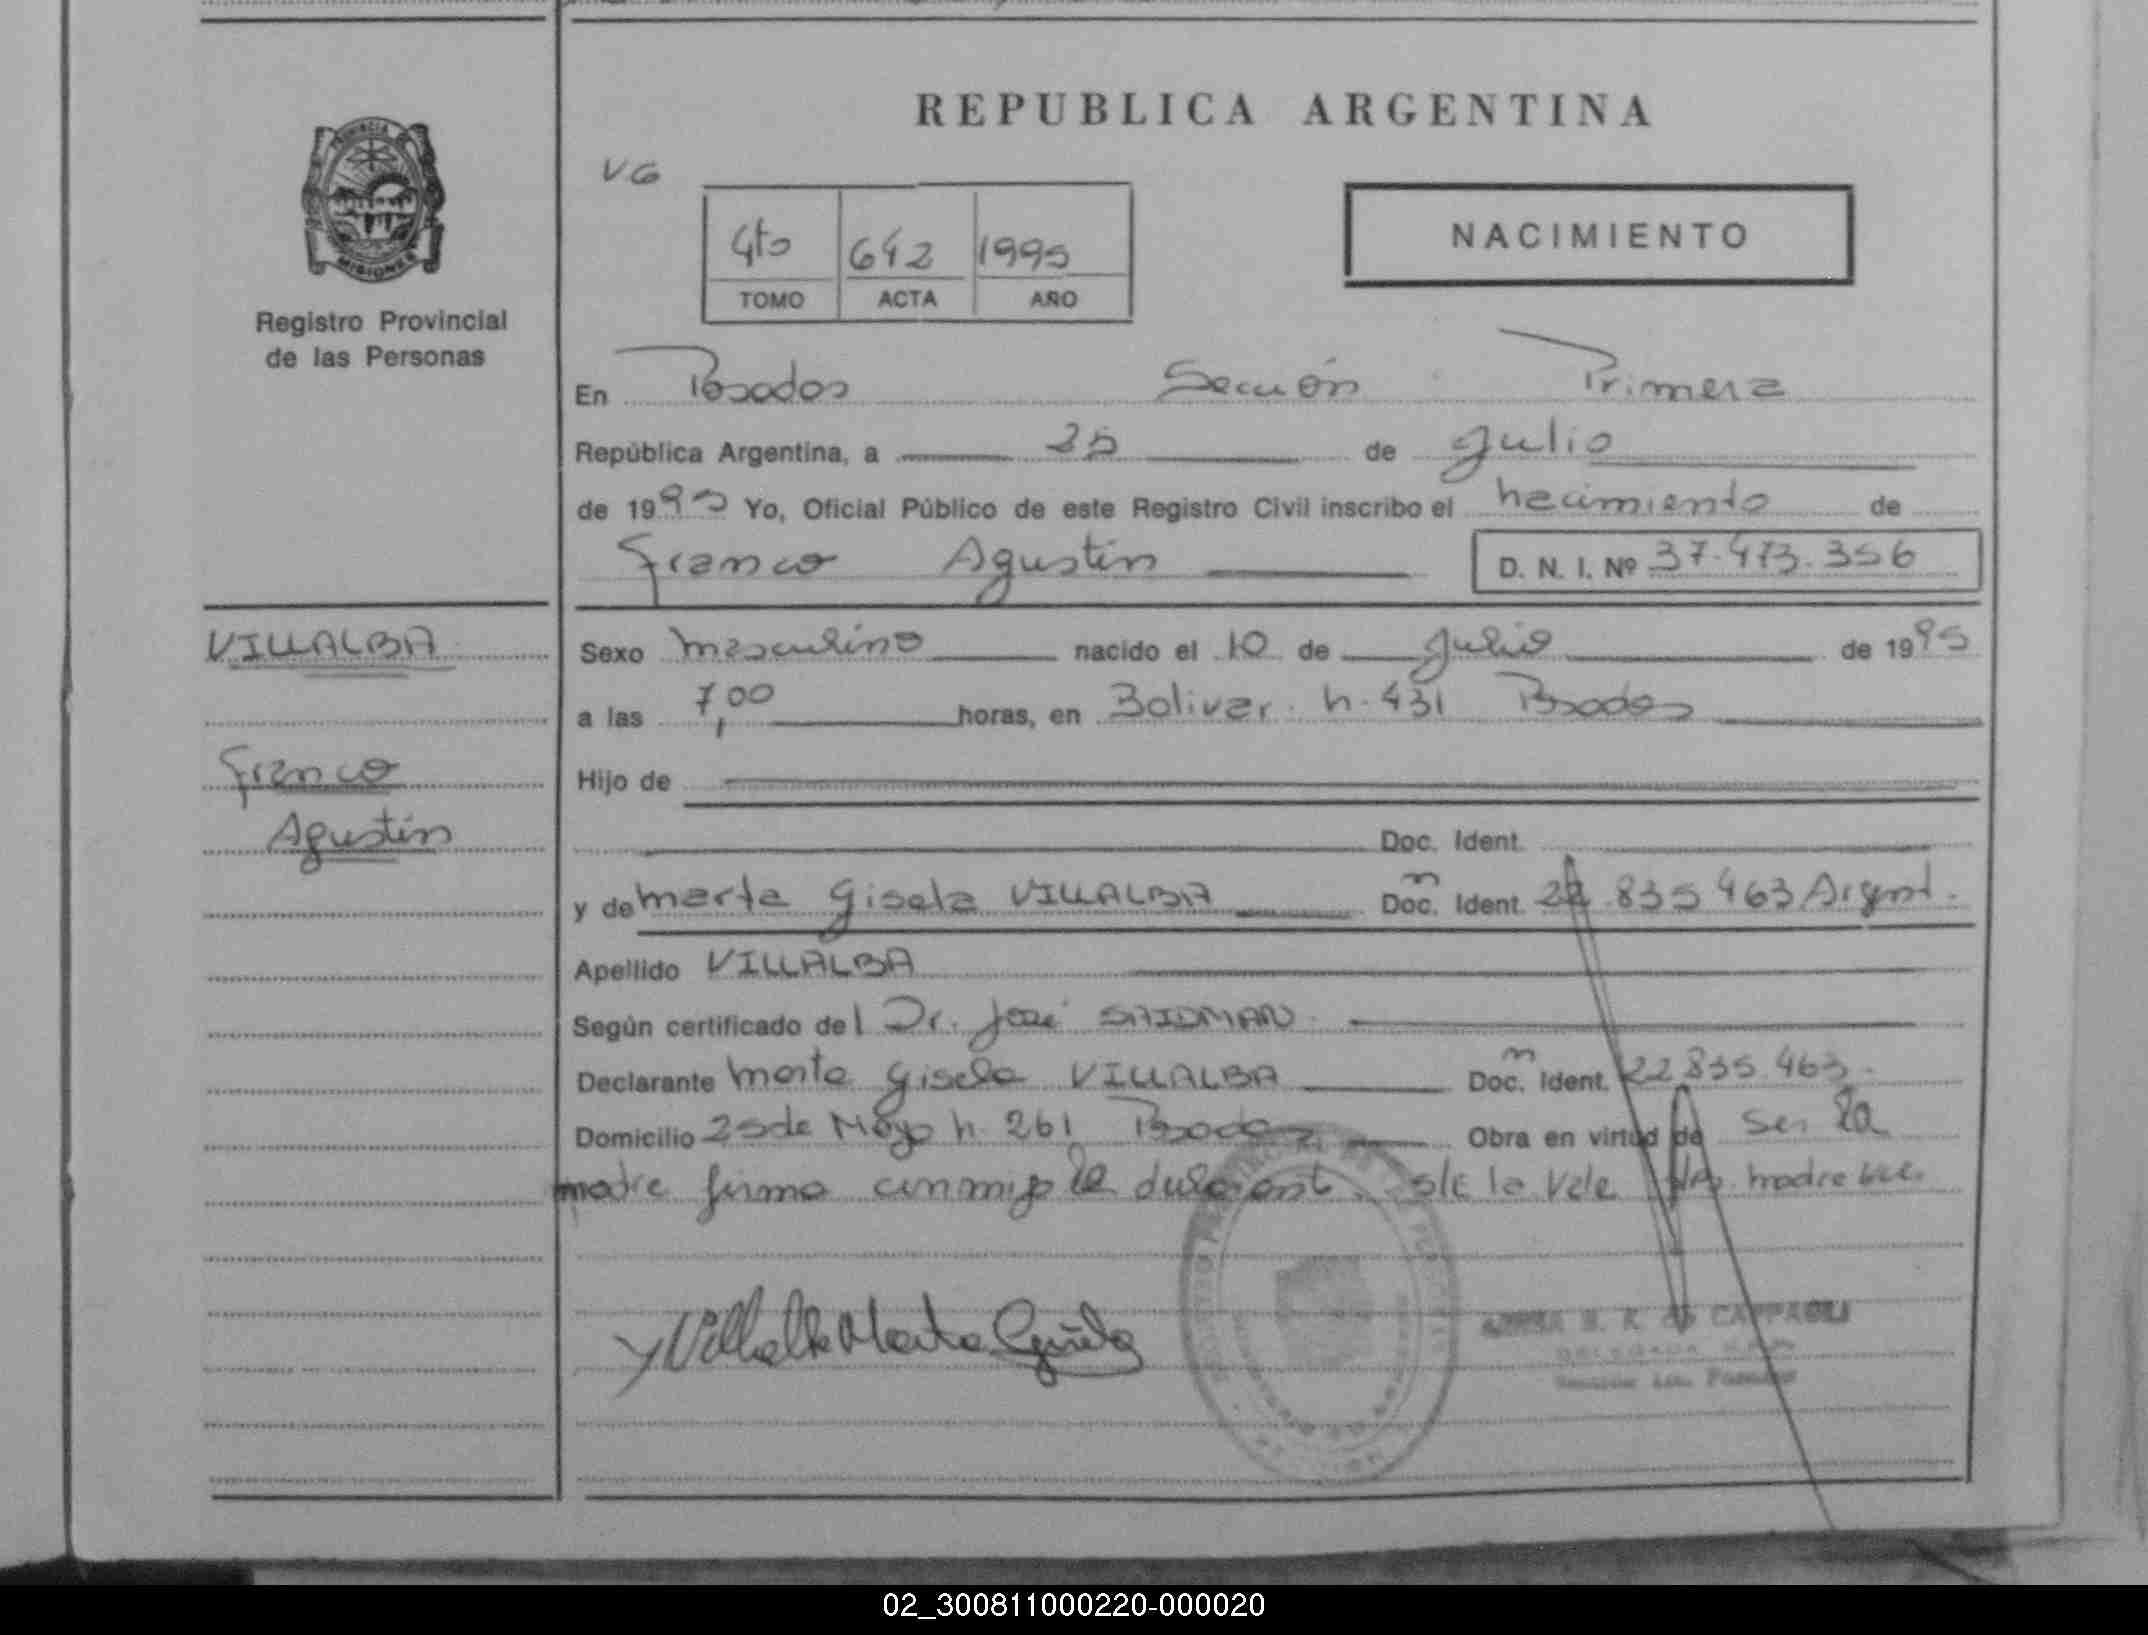 REPUBLICA ARGENTINA
PROVINCIA
MISIONES
Registro Provincial
de las Personas
VG
4to 642 1995
TOMO ACTA AÑO
NACIMIENTO
En Posadas Sección Primera
República Argentina, a 25 de Julio
de 1995 Yo, Oficial Público de este Registro Civil inscribo el nacimiento de
Franco Agustín D. N. I. Nº 37.473.356
VILLALBA
Franco
Agustín
Sexo masculino nacido el 10 de Julio de 1995
a las 7,00 horas, en Bolivar n. 431 Posadas
Hijo de
Doc. Ident.
y de Marta Gisela VILLALBA Doc. Ident. 22.835 463 Argent.
Apellido VILLALBA
Según certificado del Dr. José
Declarante Marta Gisela VILLALBA Doc. Ident. 22 835 463.
Domicilio 25 de Mayo n. 261 Posadas Obra en virtud de Ser la
madre firma conmigo la s/e la Vale madre
Villalba Marta Gisela
DE CAPPAGLI
02_300811000220-000020